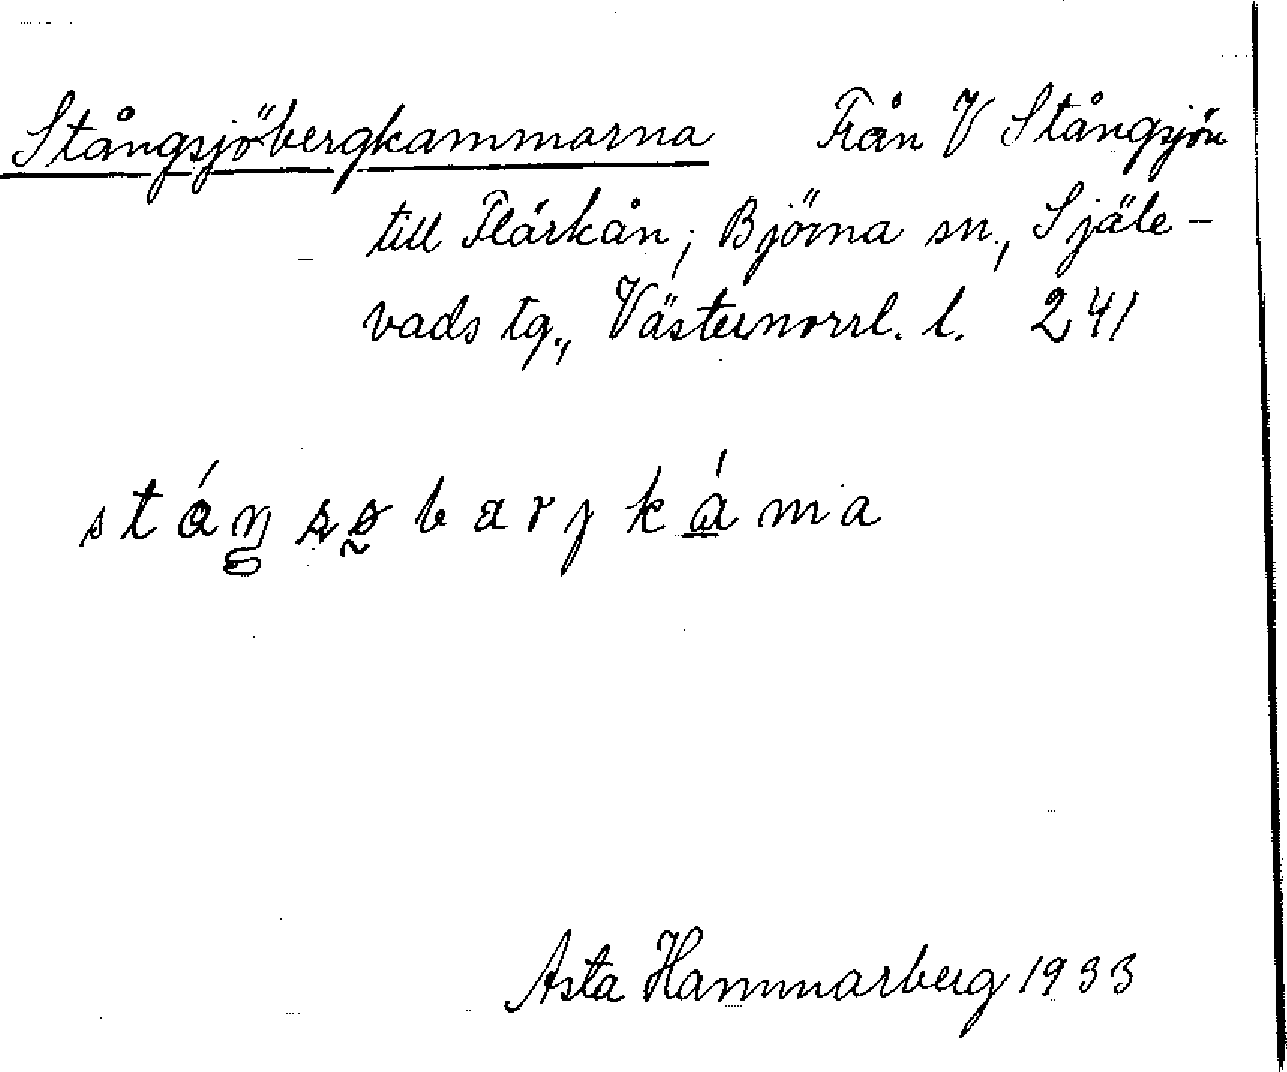 Stångsjöbergkammarna Från V Stångsjön
till Flärkån; Björna sn., Själe-
vads tg., Västernorrl. l. 241
barjkáma
Asta Hammarberg 1933